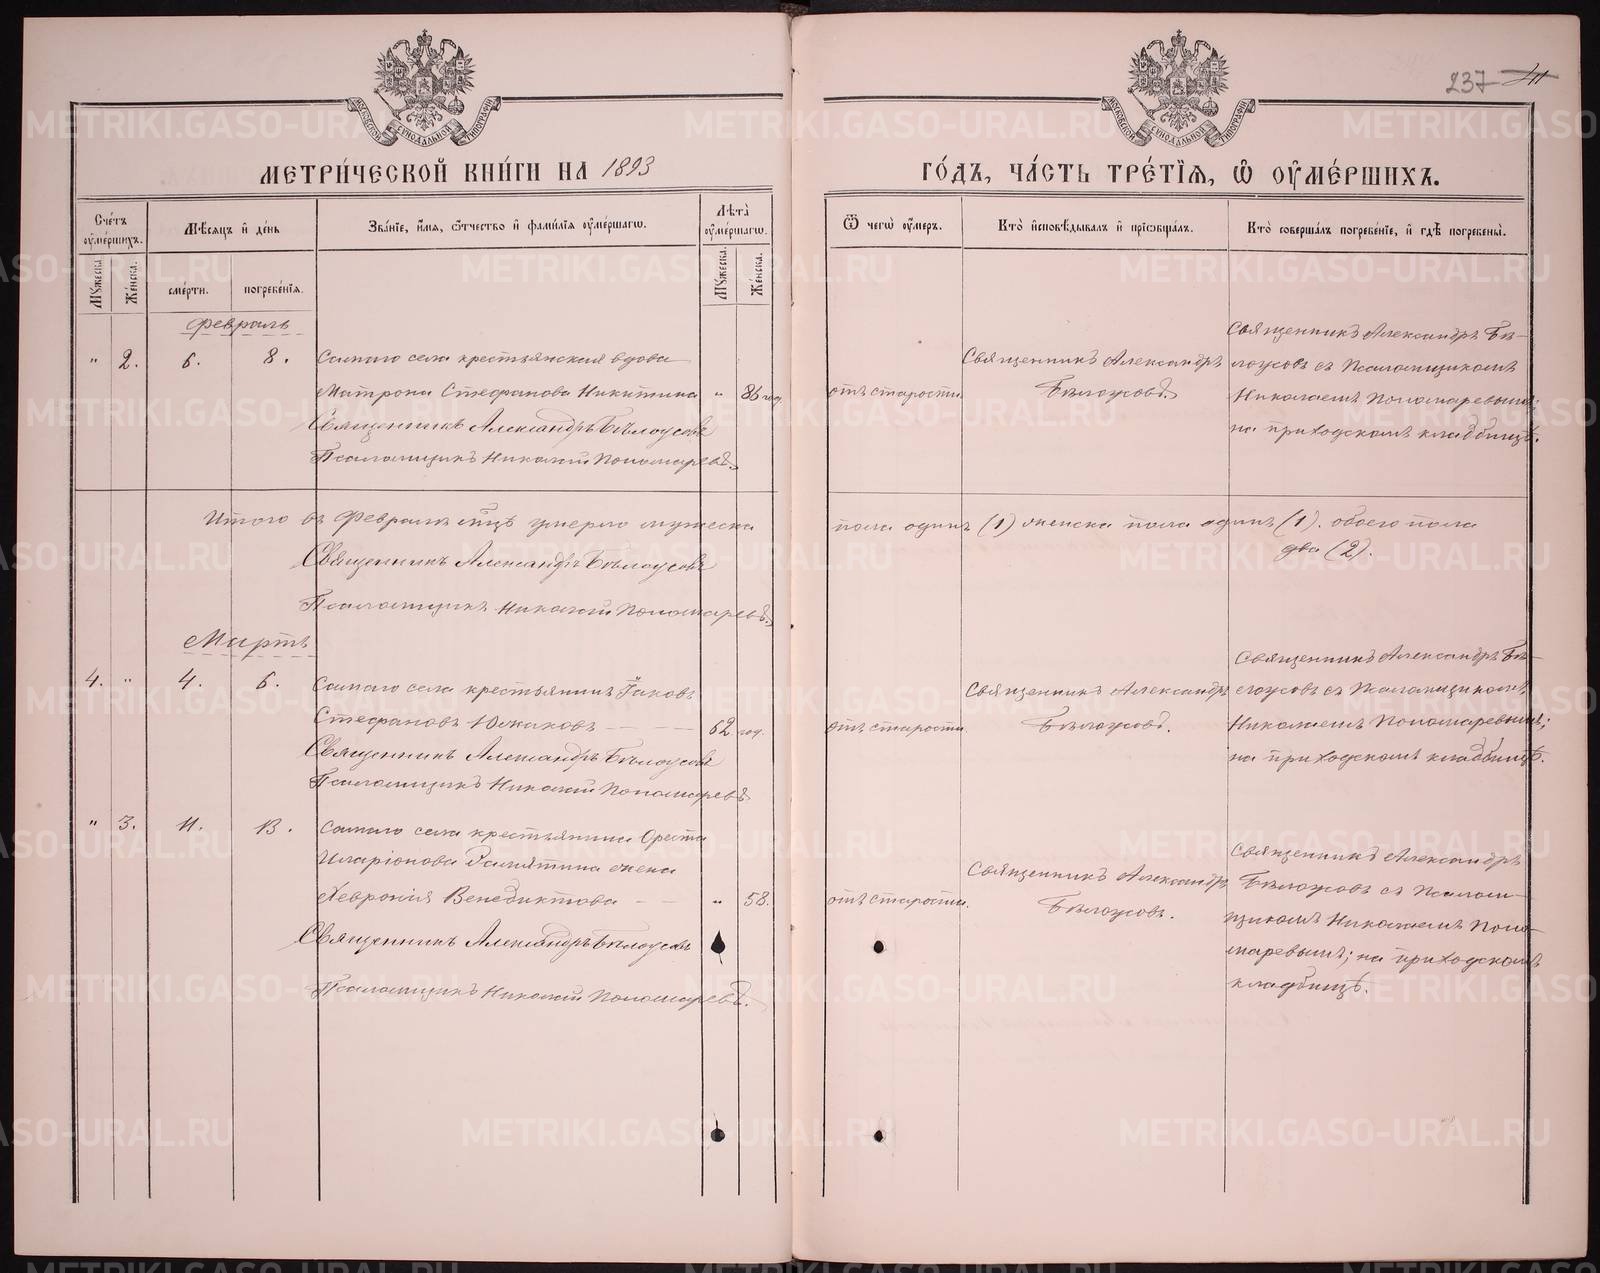 237
МОСКОВСКОЙ СѴНОДАЛЬНОЙ ТИПОГРАФІИ
МОСКОВСКОЙ СѴНОДАЛЬНОЙ ТИПОГРАФІИ
МЕТРИ́ЧЕСКОЙ КНИ́ГИ НА 1893
ГО́ДЪ, ЧА́СТЬ ТРЕ́ТІѦ, Ѡ҆ ОУ҆МЕ́РШИХЪ.
Сче́тъ оу҆ме́ршихъ.
Мꙋ́жеска.
Же́нска.
Мѣ́сѧцъ и҆ де́нь
сме́рти.
погребе́нїѧ.
Зва́нїе, и҆́мѧ, ѻ҆́тчество и҆ фами́лїѧ оу҆ме́ршагѡ.
Лѣ̑та̀ оу҆ме́ршагѡ.
Мꙋ́жеска.
Же́нска.
Ѿ чегѡ̀ оу҆́меръ.
Кто̀ и҆сповѣ́дывалъ и҆ прїѡбща́лъ.
Кто̀ соверша́лъ погребе́нїе, и҆ гдѣ̀ погребены̀.
Февраль
" 2. 6. 8. Самаго села крестьянская вдова
Матрона Стефанова Никитина " 86 год.
Священникъ Александръ Бѣлоусовъ
Псаломщикъ Николай Пономаревъ.
отъ старости.
Священникъ Александръ
Бѣлоусовъ.
Священникъ Александръ Бѣ-
лоусовъ съ Псаломщикомъ
Николаемъ Пономаревымъ;
на приходскомъ кладбищѣ.
Итого въ Февралѣ мцѣ умерло мужеска пола одинъ (1) женска пола одинъ (1). обоего пола
два (2).
Священникъ Александръ Бѣлоусовъ
Псаломщикъ Николай Пономаревъ.
Мартъ
4. " 4. 6. Самаго села крестьянинъ Іаковъ
Стефановъ Южаковъ — — 62 год.
Священникъ Александръ Бѣлоусовъ
Псаломщикъ Николай Пономаревъ
отъ старости.
Священникъ Александръ
Бѣлоусовъ.
Священникъ Александръ Бѣ-
лоусовъ съ Псаломщикомъ
Николаемъ Пономаревымъ;
на приходскомъ кладбищѣ.
" 3. 11. 13. Самаго села крестьянина Ореста
Иларіонова Замятина жена
Хевронія Венедиктова — — " 58.
Священникъ Александръ Бѣлоусовъ
Псаломщикъ Николай Пономаревъ.
отъ старости.
Священникъ Александръ
Бѣлоусовъ.
Священникъ Александръ
Бѣлоусовъ съ Псалом-
щикомъ Николаемъ Поно-
маревымъ; на приходскомъ
кладбищѣ.
METRIKI.GASO-URAL.RU